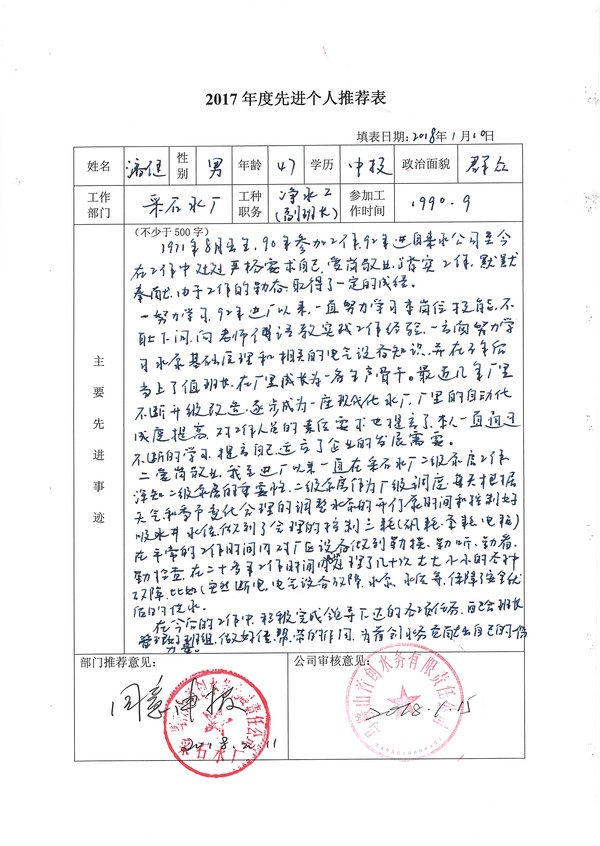 2017 年度先进个人推荐表
填表日期: 2018年 1 月 10日
姓名 潘健 性别 男 年龄 47 学历 中技 政治面貌 群众
工作部门 采石水厂 工种职务 净水工(副班长) 参加工作时间 1990.9
主要先进事迹
(不少于 500 字)
1971年8月出生,90年参加工作,92年进自来水公司至今
在工作中处处严格要求自己,爱岗敬业,踏实工作,默默
奉献,由于工作的勤奋取得了一定的成绩。
一.努力学习,92年进厂以来,一直努力学习本岗位技能,不
耻下问,向老师傅请教实践工作经验,一方面努力学
习水泵基础原理和相关的电气设备知识,并在5年后
当上了值班长,在厂里成长为一名生产骨干。最近几年厂里
不断升级改造,逐步成为一座现代化水厂,厂里的自动化
程度提高,对工作人员的素质要求也提高了,本人一直通过
不断的学习,提高自己,适应了企业的发展需要。
二.爱岗敬业,我自进厂以来一直在采石水厂二级泵房工作
深知二级泵房的重要性,二级泵房作为厂级调度,每天根据
天气和季节变化合理的调整水泵的开停泵时间和控制好
吸水井水位,做到了合理的控制三耗(矾耗.氯耗.电耗)
在平常的工作时间内对厂区设备做到勤摸、勤听、勤看、
勤检查,在二十多年工作时间内处理了几十次大大小小的各种
故障,比如(突然断电,电气设备故障,水泵,水位等,保障了安全优
质的供水。
在今后的工作中,积极完成领导下达的各项任务,配合班长
管理好班组,做好传、帮、带的作用,为首创水务贡献出自己的一份
力量。
部门推荐意见:
同意申报
采石水厂
公司审核意见:
马鞍山首创水务有限责任公司
2018.1.15